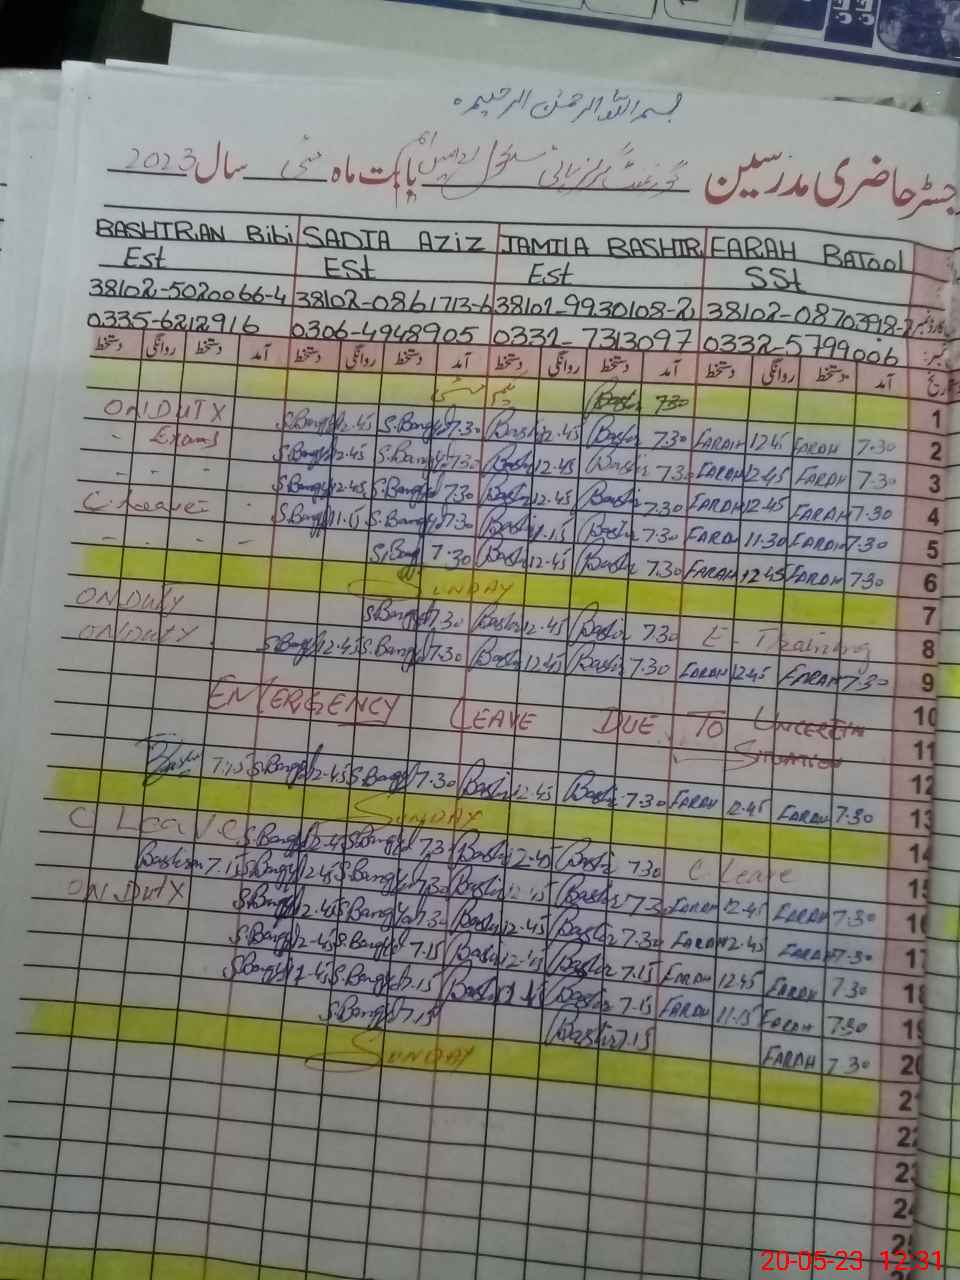 بسم اللہ الرحمن الرحیم
رجسٹر حاضری مدرسین گورنمنٹ گرلز ہائی سکول بابت ماہ مئی سال 2023
BASHIRAN BiBi SADIA AZIZ JAMILA BASHIR FARAH BATOOL
Est ESt Est SSt
38102-5020066-4 38102-0861713-6 38101-9930108-2 38102-0870398-2
0335-6212916 0306-4948905 0331-7313097 0332-5799006
دستخط روانگی دستخط آمد دستخط روانگی دستخط آمد دستخط روانگی دستخط آمد دستخط روانگی دستخط آمد
Bashir 7.30 1
ON DUTY S.Bangyl 12.45 S.Bangyl 7.30 Bashir 12.45 Bashir 7.30 FARAH 12.45 FARAH 7.30 2
- Exams S.Bangyl 12.45 S.Bangyl 7.30 Bashir 12.45 Bashir 7.30 FARAH 12.45 FARAH 7.30 3
- - - S.Bangyl 12.45 S.Bangyl 7.30 Bashir 12.45 Bashir 7.30 FARAH 12.45 FARAH 7.30 4
C-Leave S.Bangyl 11.15 S.Bangyl 7.30 Bashir 11.15 Bashir 7.30 FARAH 11.30 FARAH 7.30 5
- - - - S.Bangyl 7.30 Bashir 12.45 Bashir 7.30 FARAH 12.45 FARAH 7.30 6
SUNDAY 7
ON Duty S.Bangyl 7.30 Bashir 12.45 Bashir 7.30 E-Training 8
ON DUTY S.Bangyl 12.45 S.Bangyl 7.30 Bashir 12.45 Bashir 7.30 FARAH 12.45 FARAH 7.30 9
EMERGENCY LEAVE DUE TO UNCERTAIN 10
SITUATION 11
7.15 S.Bangyl 12.45 S.Bangyl 7.30 Bashir 12.45 Bashir 7.30 FARAH 12.45 FARAH 7.30 12
SUNDAY 13
C Leave S.Bangyl 12.45 S.Bangyl 7.3 Bashir 12.45 Bashir 7.30 C. Leave 14
Bashiran 7.15 S.Bangyl 12.45 S.Bangyl 7.30 Bashir 12.45 Bashir 7.30 FARAH 12.45 FARAH 7.30 15
ON DUTY S.Bangyl 12.45 S.Bangyl 7.30 Bashir 12.45 Bashir 7.30 FARAH 12.45 FARAH 7.30 16
S.Bangyl 12.45 S.Bangyl 7.15 Bashir 12.45 Bashir 7.15 FARAH 12.45 FARAH 7.30 17
S.Bangyl 12.45 S.Bangyl 7.15 Bashir Bashir 7.15 FARAH 11.15 FARAH 7.30 18
S.Bangyl 7.15 Bashir 7.15 FARAH 7.30 19
SUNDAY 20
21
22
23
24
25
20-05-23 12:31